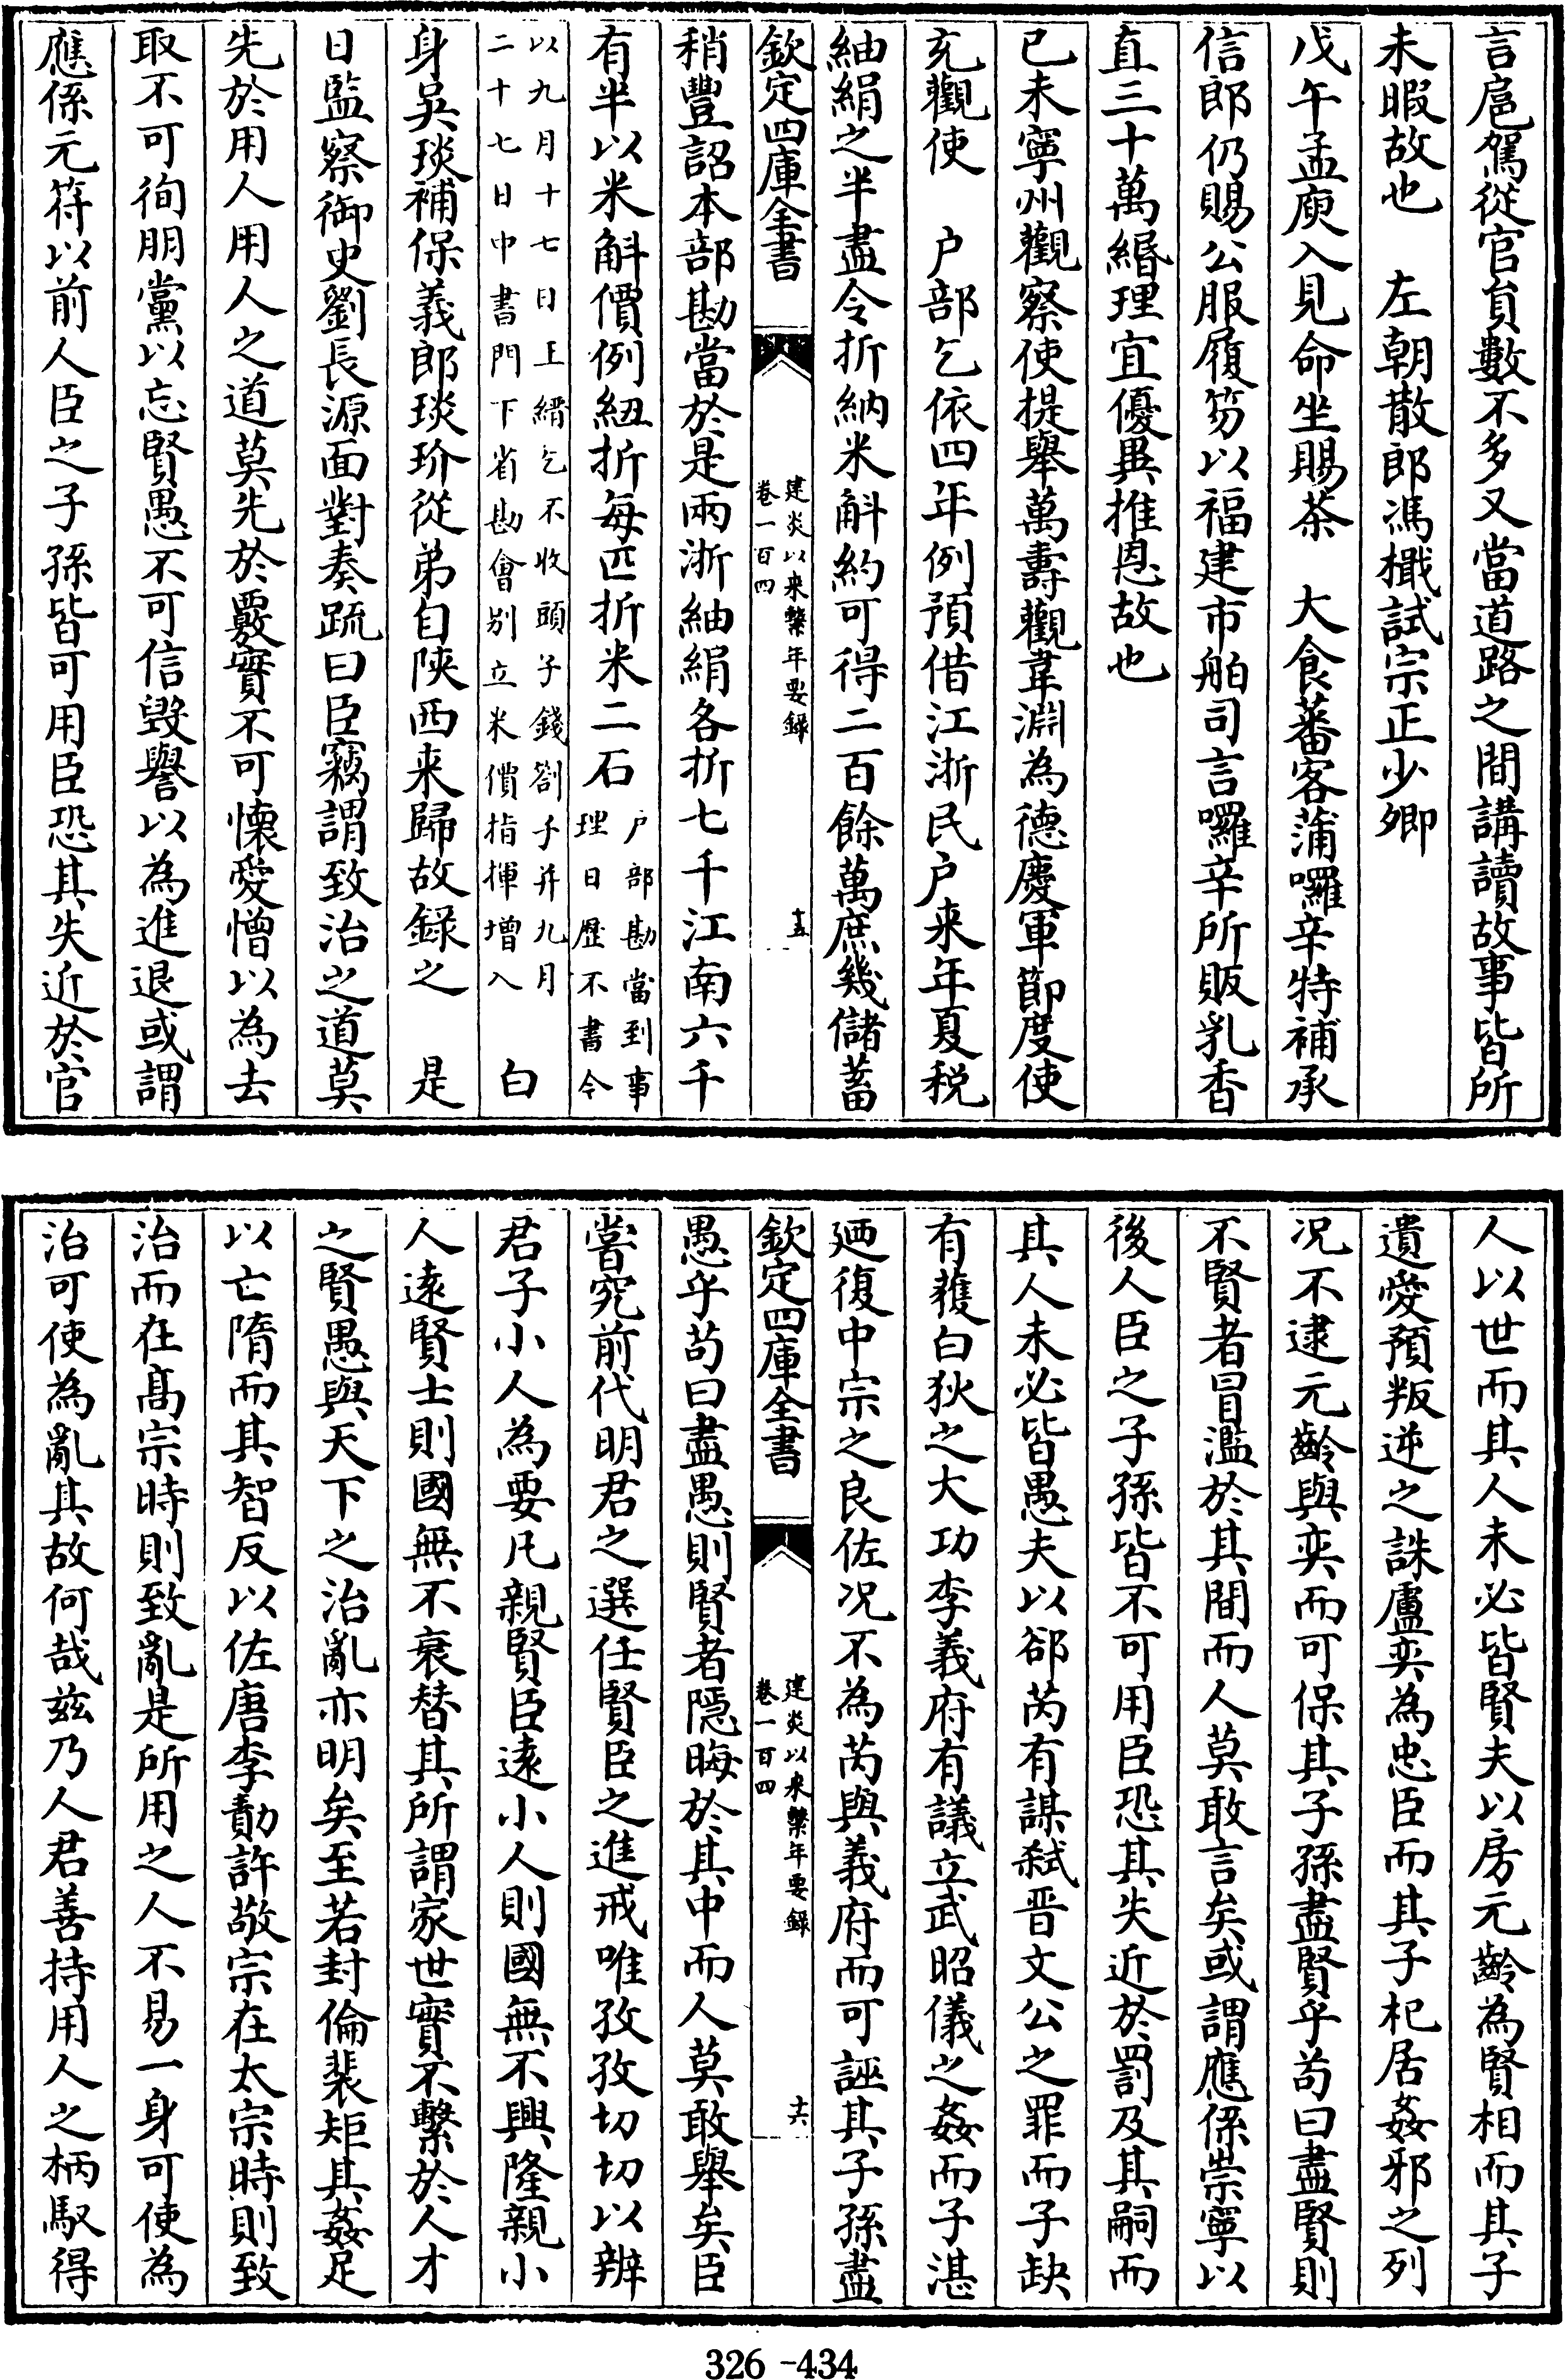 言扈駕從官員數不多又當道路之間講讀故事皆所
未暇故也　左朝散郎馮檝試宗正少卿
戊午孟庾入見命坐賜茶　大食蕃客蒲囉辛特補承
信郎仍賜公服履笏以福建市舶司言囉辛所販乳香
直三十萬緡理宜優異推恩故也
己未寧州觀察使提舉萬壽觀韋淵為德慶軍節度使
充觀使　户部乞依四年例預借江浙民户来年夏税
紬絹之半盡令折納米斛約可得二百餘萬庶幾儲蓄
欽定四庫全書　建炎以来繫年要録　卷一百四　十五
稍豐詔本部勘當於是兩浙紬絹各折七千江南六千
有半以米斛價例紐折每匹折米二石
户部勘當到事
理日歷不書令
以九月十七日王縉乞不收頭子錢劄子并九月
二十七日中書門下省勘會别立米價指揮增入
白
身吳琰補保義郎琰玠從弟自陝西来歸故録之　是
日監察御史劉長源面對奏疏曰臣竊謂致治之道莫
先於用人用人之道莫先於覈實不可懷愛憎以為去
取不可徇朋黨以忘賢愚不可信毀譽以為進退或謂
應係元符以前人臣之子孫皆可用臣恐其失近於官
人以世而其人未必皆賢夫以房元齡為賢相而其子
遺愛預叛逆之誅盧奕為忠臣而其子杞居姦邪之列
况不逮元齡與奕而可保其子孫盡賢乎苟曰盡賢則
不賢者冒濫於其間而人莫敢言矣或謂應係崇寧以
後人臣之子孫皆不可用臣恐其失近於罰及其嗣而
其人未必皆愚夫以郤芮有謀弑晉文公之罪而子缺
有獲白狄之大功李義府有議立武昭儀之姦而子湛
廼復中宗之良佐况不為芮與義府而可誣其子孫盡
欽定四庫全書　建炎以来繫年要録　卷一百四　十六
愚乎苟曰盡愚則賢者隱晦於其中而人莫敢舉矣臣
嘗究前代明君之選任賢臣之進戒唯孜孜切切以辨
君子小人為要凡親賢臣遠小人則國無不興隆親小
人遠賢士則國無不衰替其所謂家世實不繫於人才
之賢愚與天下之治亂亦明矣至若封倫裴矩其姦足
以亡隋而其智反以佐唐李勣許敬宗在太宗時則致
治而在髙宗時則致亂是所用之人不易一身可使為
治可使為亂其故何哉兹乃人君善持用人之柄馭得
326-434